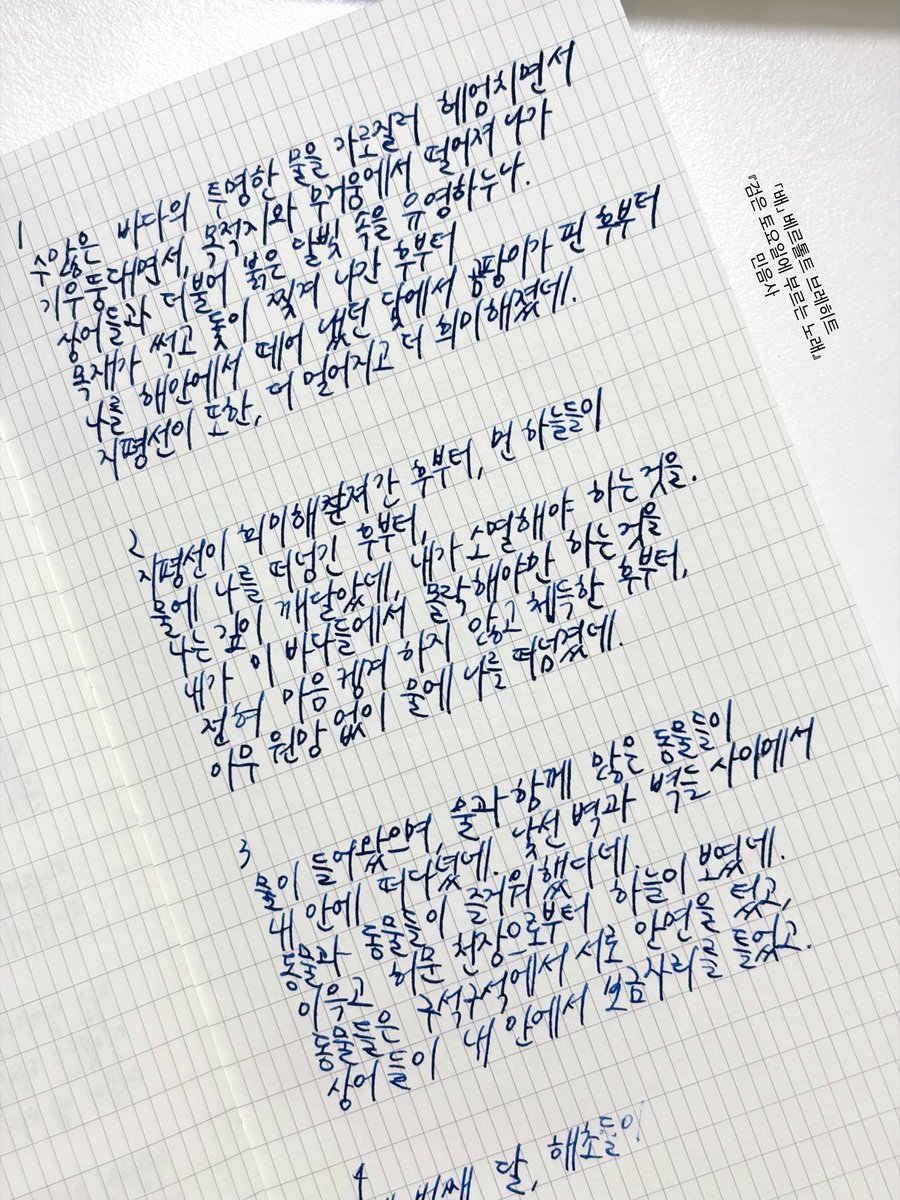 1
수많은 바다의 투명한 물을 가로질러 헤엄치면서
기우뚱대면서, 목적지와 무거움에서 떨어져 나가
상어들과 더불어 붉은 달빛 속을 유영하누나.
목재가 썩고 돛이 찢겨 나간 후부터
나를 해안에서 떼어 냈던 닻에서 곰팡이가 핀 후부터
지평선이 또한, 더 멀어지고 더 희미해졌네.
2
지평선이 희미해져간 후부터, 먼 하늘들이
물에 나를 떠넘긴 후부터,
나는 깊이 깨달았네, 내가 소멸해야 하는것을.
내가 이 바다들에서 몰락해야만 하는것을
전혀 마음 켕겨 하지 않고 체득한 후부터,
아무 원망 없이 물에 나를 떠넘겼네.
3
물이 들어왔으며, 물과 함께 많은 동물들이
내 안에 떠다녔네. 낯선 벽과 벽들 사이에서
동물과 동물들이 즐거워했다네.
이윽고 허문 천장으로부터 하늘이 보였네.
동물들은 구석구석에서 서로 안면을 텄고,
상어들이 내 안에서 보금자리를 틀었고.
4
번째 달, 해초들이
「배」 베르톨트 브레히트
『검은 토요일에 부르는 노래』
민음사